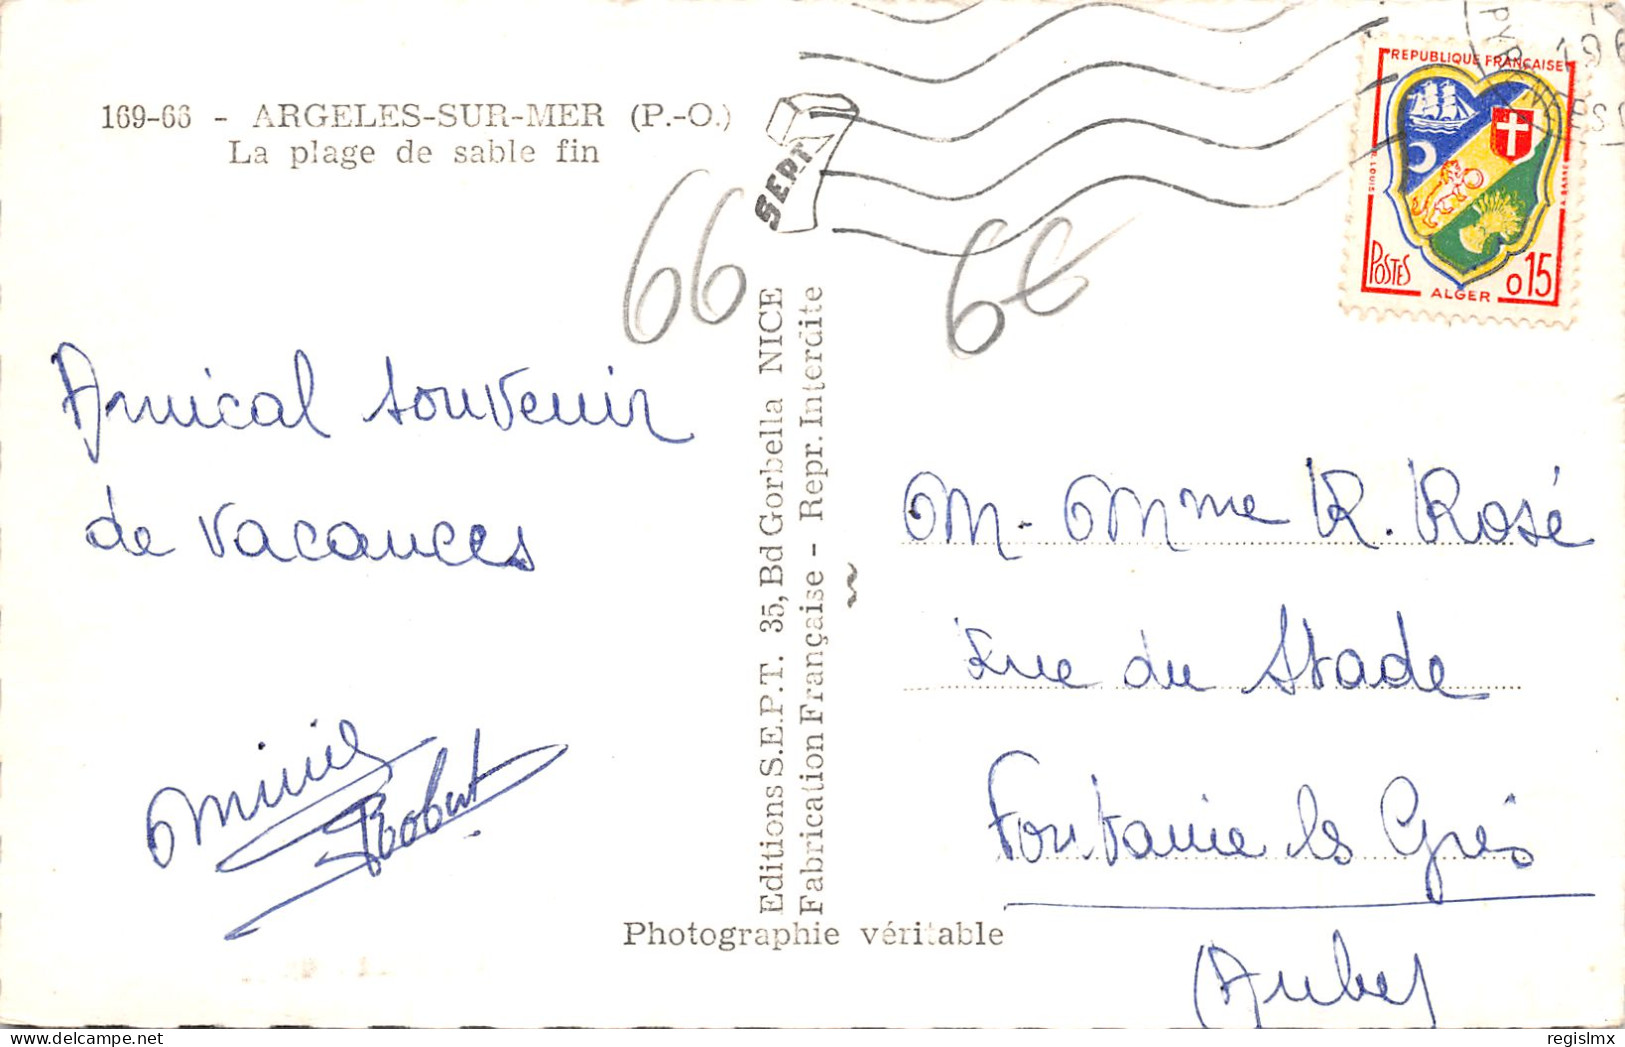 169-66 - ARGELES-SUR-MER (P.-O.)
La plage de sable fin
66
66
SEPT
REPUBLIQUE FRANÇAISE
POSTES
ALGER
0,15
196
Amical souvenir
de vacances
Robert
Editions S.E.P.T. 35, Bd Gorbella NICE
Fabrication Française - Repr. Interdite
Photographie véritable
M. Mme R. Rosé
Rue du Stade
Fontaine les Grès
(Aube)
regislmx